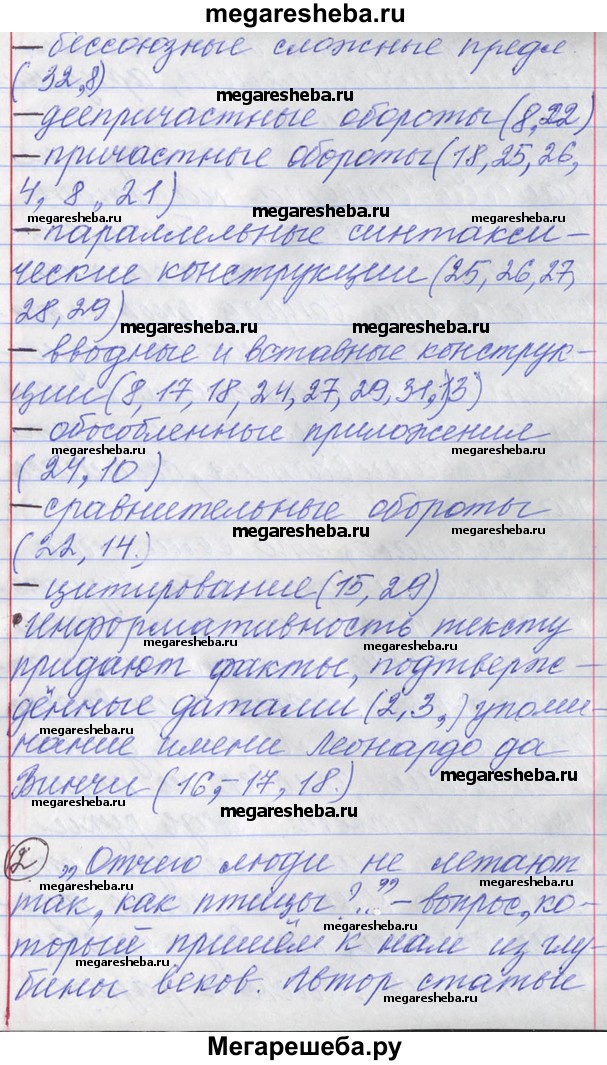 megaresheba.ru
— бессоюзные сложные предл.
(32,8)
megaresheba.ru
— деепричастные обороты (8,22)
megaresheba.ru
— причастные обороты (18, 25, 26,
4, 8, 21)
megaresheba.ru
megaresheba.ru
megaresheba.ru
— параллельные синтакси-
ческие конструкции (25, 26, 27,
28, 29)
megaresheba.ru
megaresheba.ru
— вводные и вставные конструк-
ции (8, 17, 18, 24, 27, 29, 31, 13)
megaresheba.ru
megaresheba.ru
— обособленные приложения
(24, 10)
megaresheba.ru
— сравнительные обороты
megaresheba.ru
(22, 14.)
megaresheba.ru
— цитирование (15, 29)
• Информативность тексту
megaresheba.ru
придают факты, подтверж-
megaresheba.ru
дённые датами (2, 3,) упоми-
megaresheba.ru
нание имени Леонардо да
Винчи (16, -17, 18.)
megaresheba.ru
megaresheba.ru
② „Отчего люди не летают
megaresheba.ru
megaresheba.ru
так, как птицы?.." – вопрос, ко-
megaresheba.ru
торый пришёл к нам из глу-
megaresheba.ru
бины веков. Автор статьи
megaresheba.ru
Мегарешеба.ру